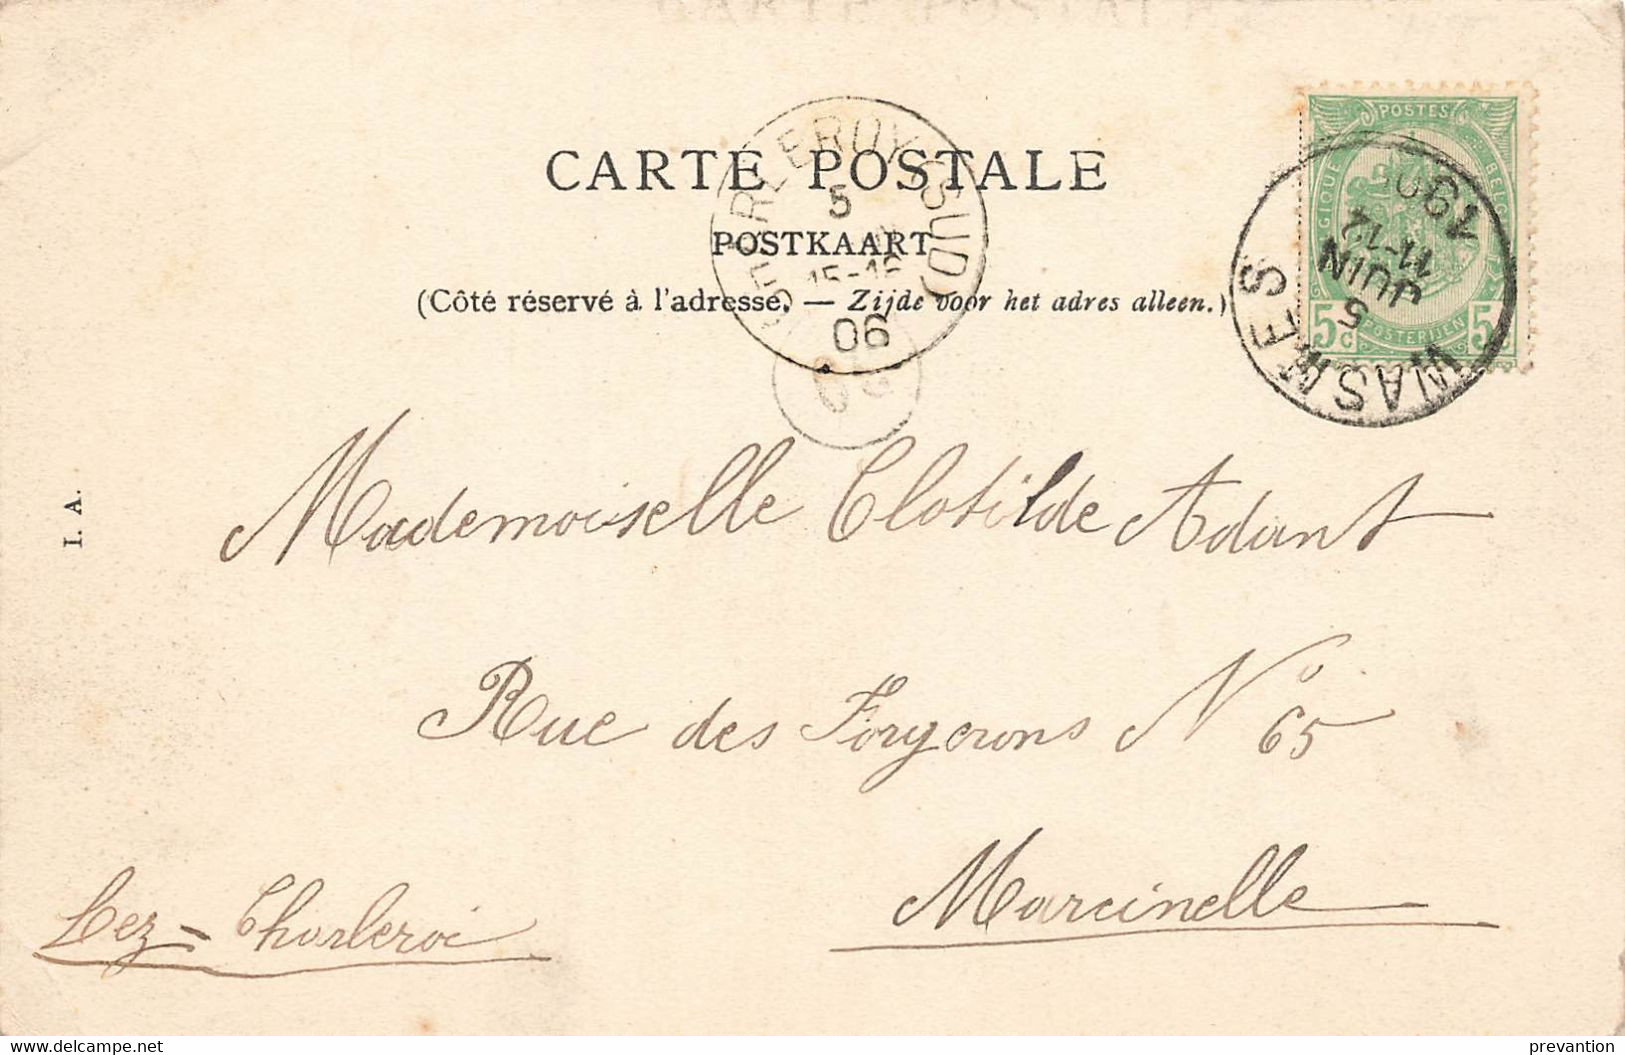 CARTE POSTALE
POSTKAART
(Côté réservé à l'adresse. — Zijde voor het adres alleen.)
POSTES
BELGIQUE
5c POSTERIJEN 5c
WASMES
5
JUIN
11-12
(SUD)
5
15-16
06
I. A.
Mademoiselle Clotilde Adant
Rue des Forgerons No 65
Marcinelle
Lez-Charleroi
www.delcampe.net
prevantion